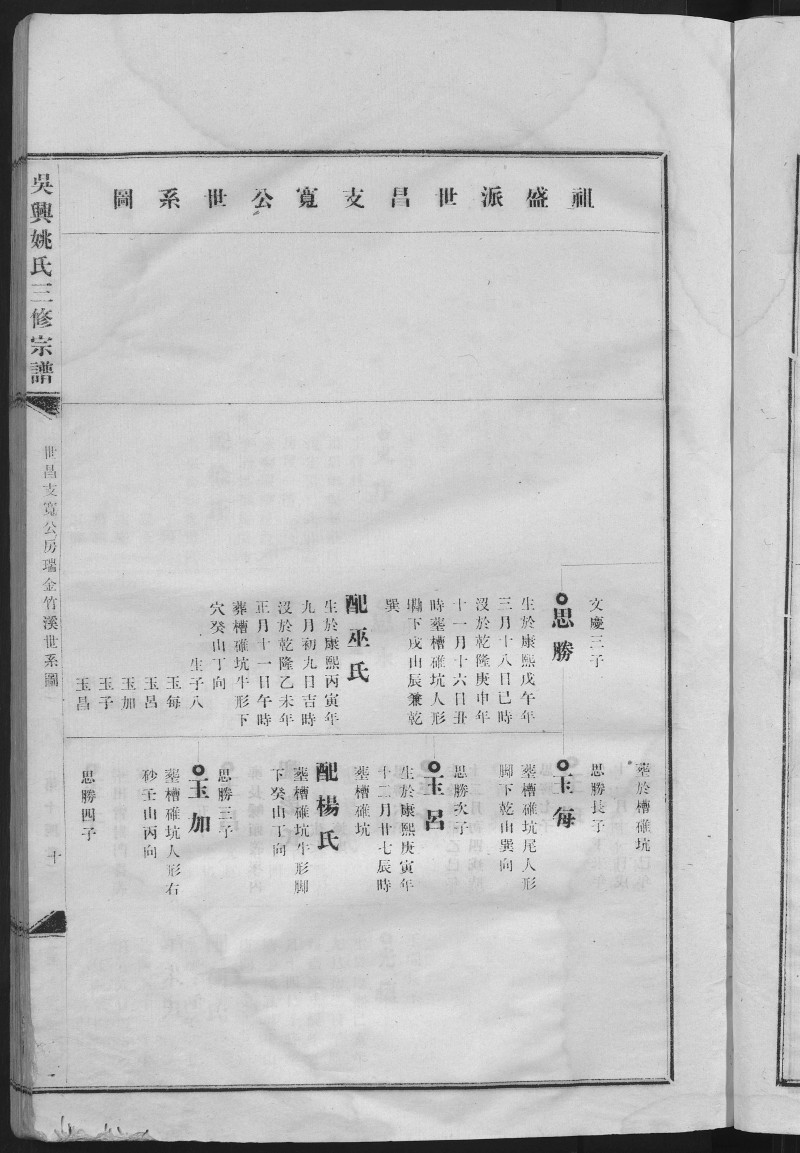 祖盛派世昌支寬公世系圖
文慶三子
思勝
生於康熙戊午年
三月十八日巳時
沒於乾隆庚申年
十一月十六日丑
時塟槽碓坑人形
墈下戌山辰兼乾
巽
配巫氏
生於康熙丙寅年
九月初九日吉時
沒於乾隆乙未年
正月十一日午時
塟槽碓坑牛形下
穴癸山丁向
生子八
玉每
玉呂
玉加
玉子
玉昌
塟於槽碓坑
思勝長子
玉每
塟槽碓坑尾人形
脚下乾山巽向
思勝次子
玉呂
生於康熙庚寅年
十二月廿七辰時
塟槽碓坑
配楊氏
塟槽碓坑牛形脚
下癸山丁向
思勝三子
玉加
塟槽碓坑人形右
砂壬山丙向
思勝四子
吳興姚氏三修宗譜
世昌支寬公房瑞金竹溪世系圖
十